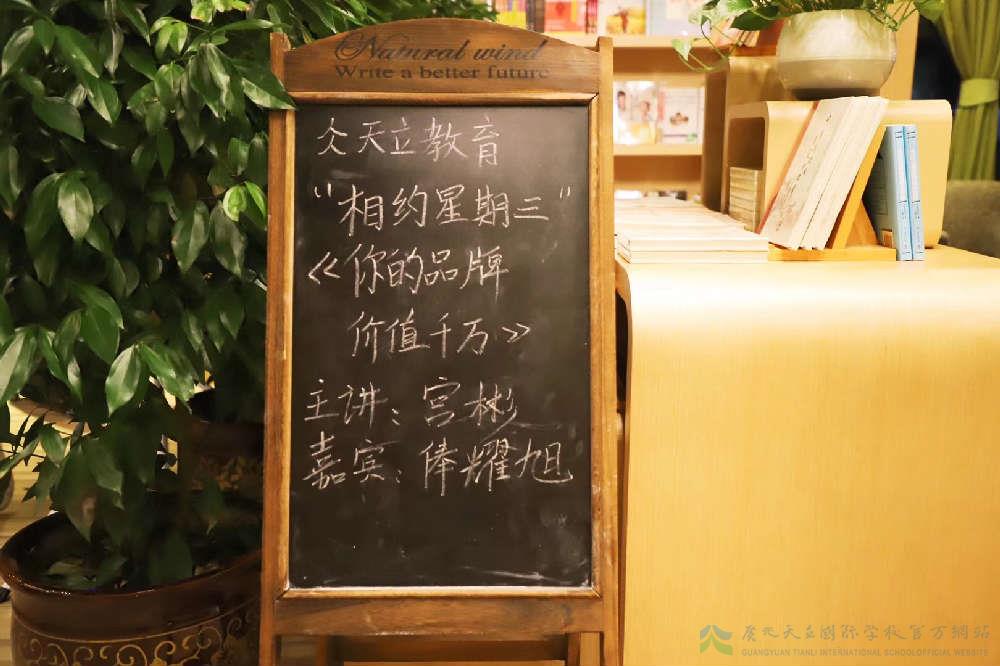 Natural wind
Write a better future
仌天立教育
"相约星期三"
《你的品牌
价值千万》
主讲：宫彬
嘉宾：俸耀旭
广元天立国际学校官方網站
GUANGYUAN TIANLI INTERNATIONAL SCHOOLOFFICIAL WEBSITE